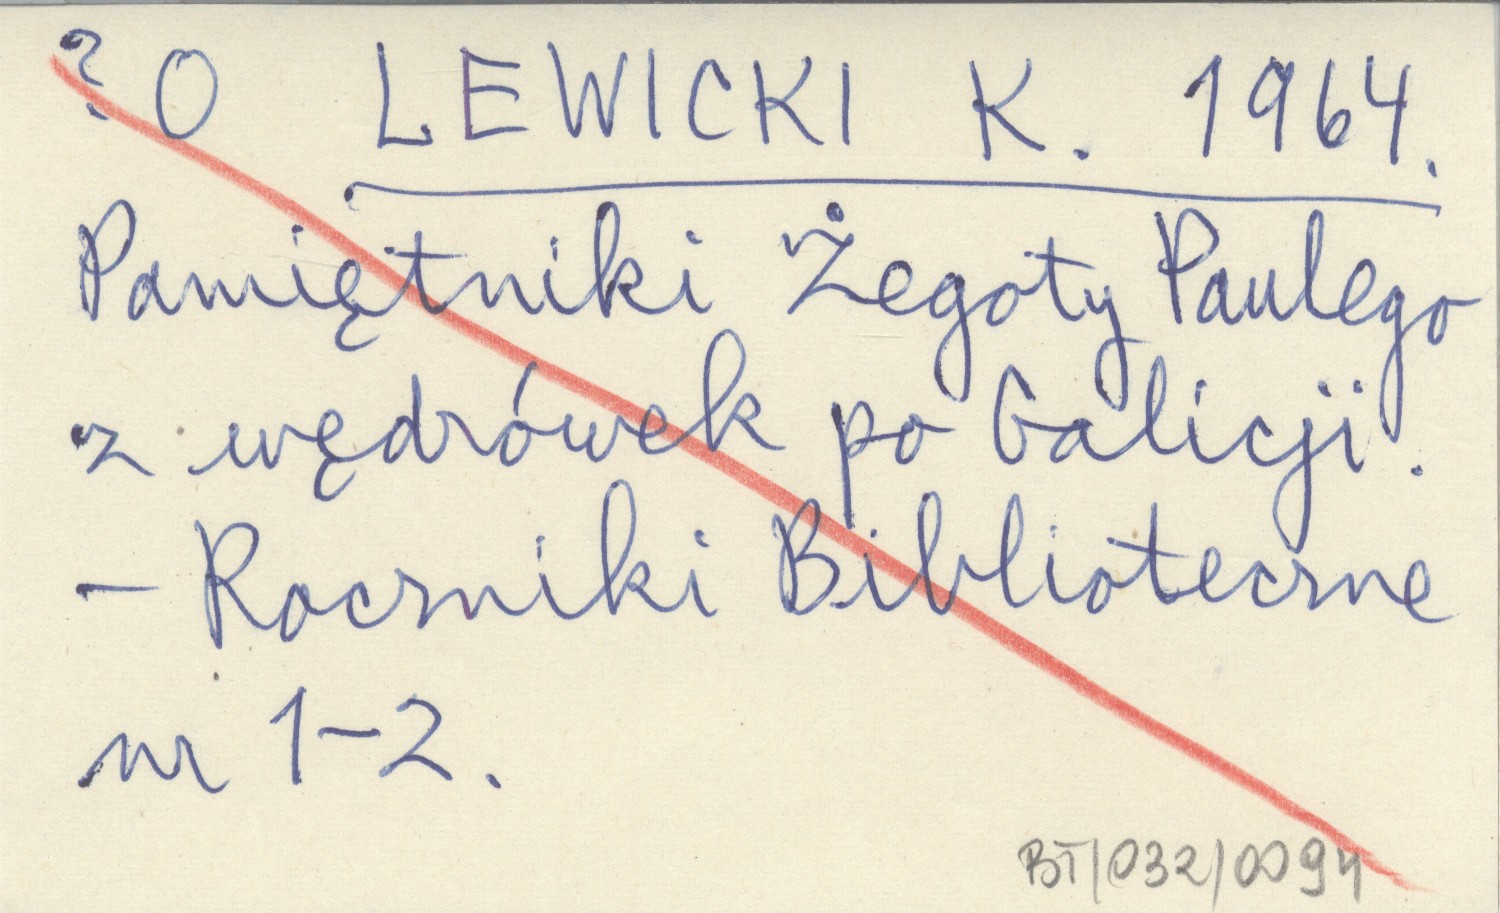 ? O LEWICKI K. 1964.
Pamiętniki Żegoty Paulego
z wędrówek po Galicji.
– Roczniki Biblioteczne
nr 1–2.
BT/032/0094